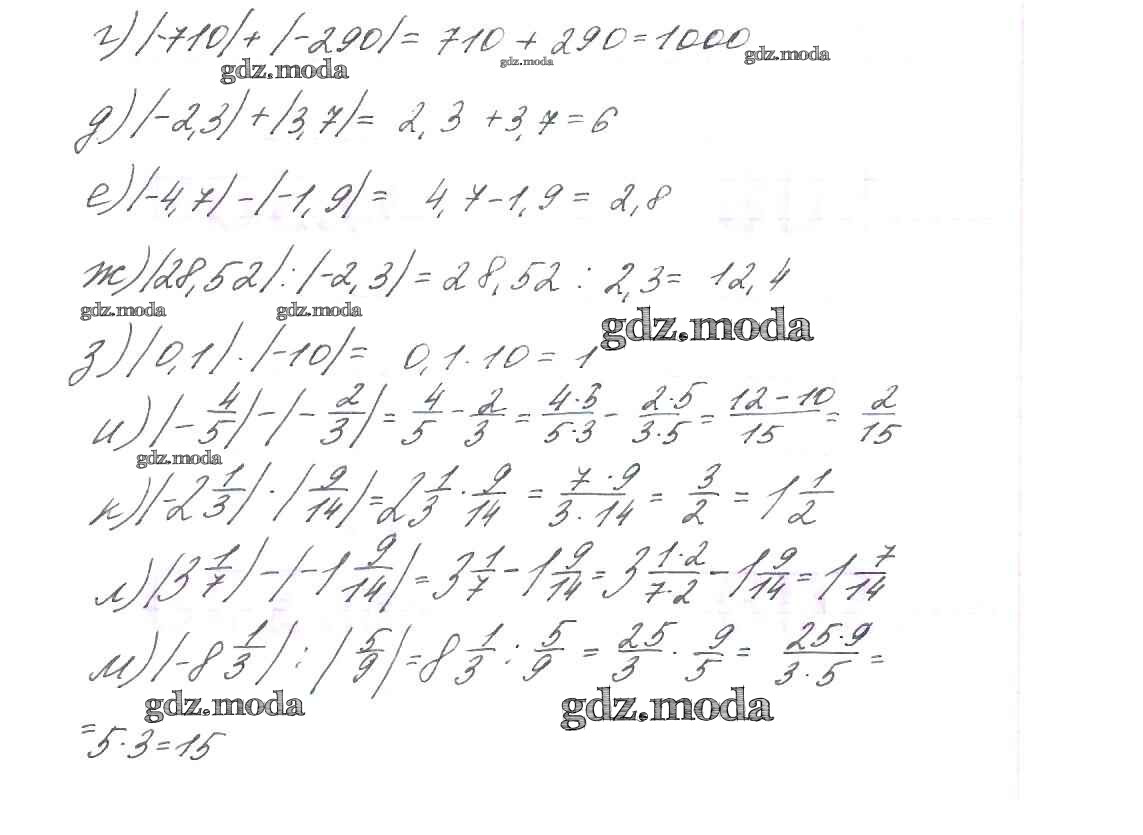 г) |-710| + |-290| = 710 + 290 = 1000
gdz.moda gdz.moda gdz.moda
д) |-2,3| + |3,7| = 2,3 + 3,7 = 6
е) |-4,7| - |-1,9| = 4,7 - 1,9 = 2,8
ж) |28,52| : |-2,3| = 28,52 : 2,3 = 12,4
gdz.moda gdz.moda gdz.moda
з) |0,1| · |-10| = 0,1 · 10 = 1
и) |-4/5| - |-2/3| = 4/5 - 2/3 = 4·3/5·3 - 2·5/3·5 = 12-10/15 = 2/15
gdz.moda
к) |-2 1/3| · |9/14| = 2 1/3 · 9/14 = 7·9/3·14 = 3/2 = 1 1/2
л) |3 1/7| - |-1 9/14| = 3 1/7 - 1 9/14 = 3 1·2/7·2 - 1 9/14 = 1 7/14
м) |-8 1/3| : |5/9| = 8 1/3 : 5/9 = 25/3 · 9/5 = 25·9/3·5 =
gdz.moda gdz.moda
= 5·3 = 15